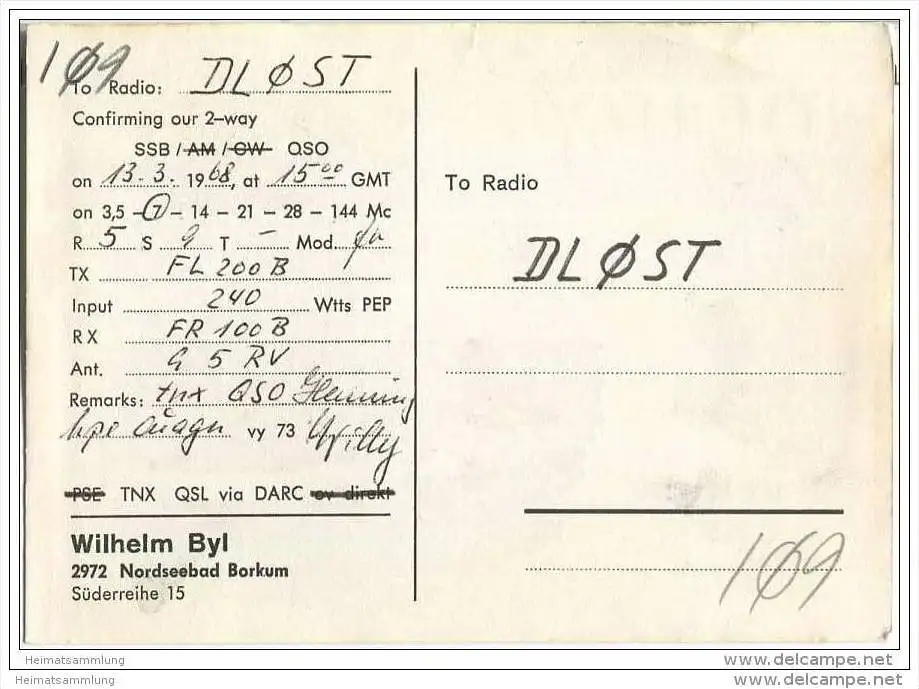 1Ø9
To Radio: DLØST
Confirming our 2-way
SSB / AM / CW QSO
on 13. 3. 1968, at 15⁰⁰ GMT
on 3,5 - 7 - 14 - 21 - 28 - 144 Mc
R 5 S 9 T - Mod.
TX FL 200 B
Input 240 Wtts PEP
RX FR 100 B
Ant. G 5 RV
Remarks: tnx QSO Henning
hpe cuagn vy 73 Willy
PSE TNX QSL via DARC ov direkt
Wilhelm Byl
2972 Nordseebad Borkum
Süderreihe 15
To Radio
DLØST
1Ø9
Heimatsammlung
Heimatsammlung
www.delcampe.net
www.delcampe.net